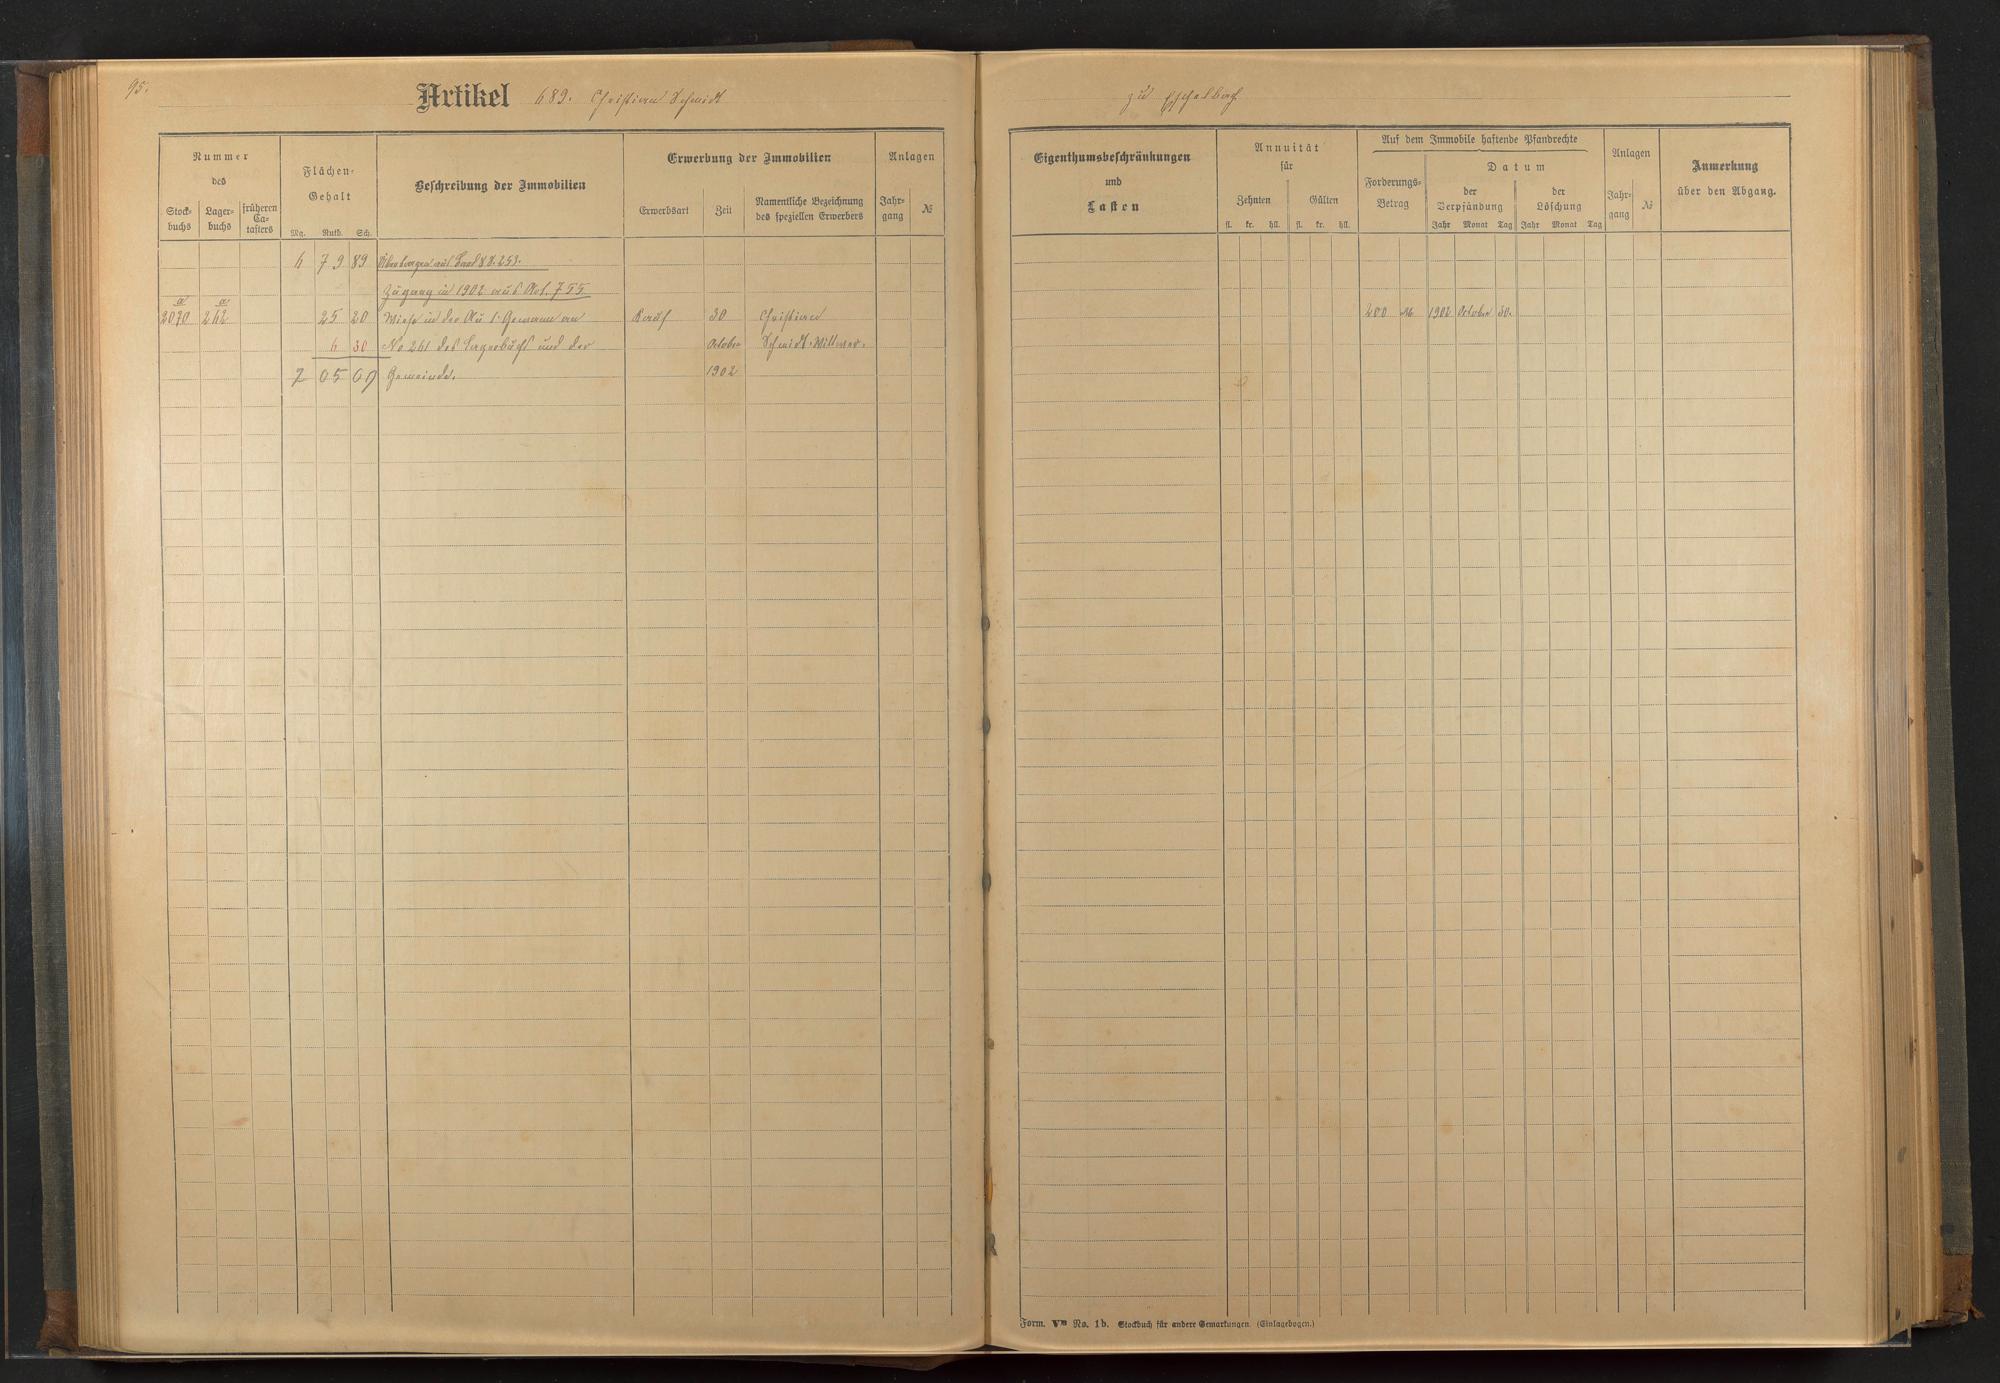 95.
Artikel 689. Christian Schmidt
zu Eschelbach
Nummer
des
Stock-
buchs
Lager-
buchs
früheren
Ca-
tasters
Flächen-
Gehalt
Mg. Ruth. Sch.
Beschreibung der Immobilien
Erwerbung der Immobilien
Erwerbsart
Zeit
Namentliche Bezeichnung
des speziellen Erwerbers
Anlagen
Jahr-
gang
№
6 79 89 Übertragen aus Band
Zugang in 1902 aus Art. 755
a a
2070 262 25 20 Wiese in der Au 1. Gewann an Kauf 30 Christian
6 30 No 261 des Lagerbuchs und der October Schmidt Wittwer.
7 05 09 Gemeinde. 1902
Eigenthumsbeschränkungen
und
Lasten
Annuität
für
Zehnten
Gülten
fl. kr. hll. fl. kr. hll.
Auf dem Immobile haftende Pfandrechte
Forderungs-
Betrag
Datum
der
Verpfändung
der
Löschung
Jahr Monat Tag Jahr Monat Tag
Anlagen
Jahr-
gang
№
Anmerkung
über den Abgang.
200 M 1902 October 30.
Form. No. 1b. Stockbuch für andere Gemarkungen. (Einlagebogen.)